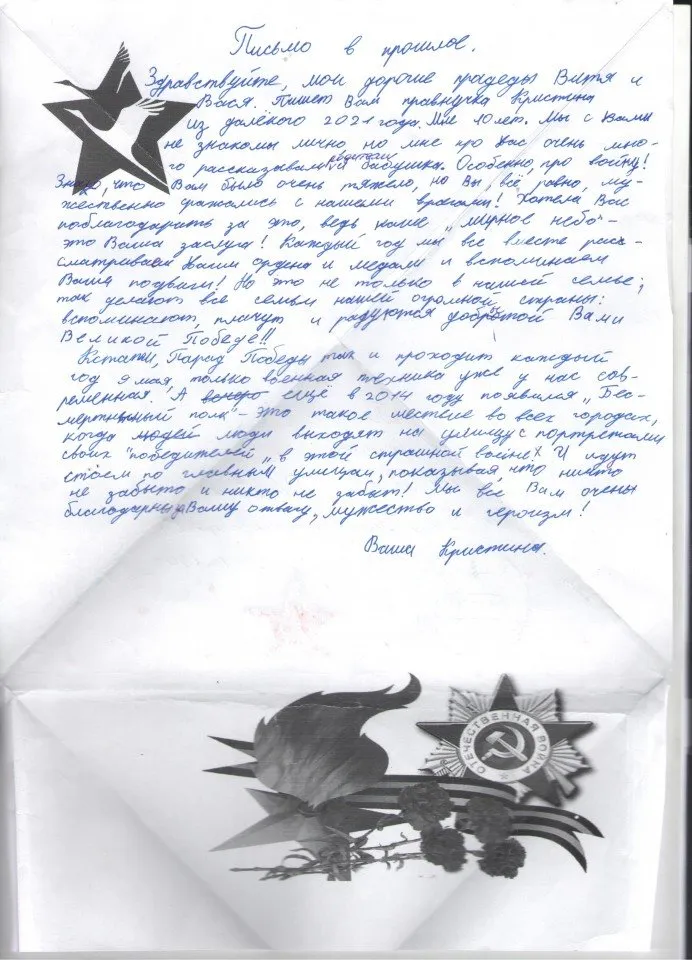 Письмо в прошлое.
Здравствуйте, мои дорогие прадеды Витя и
Вася. Пишет Вам правнучка Кристина
из далёкого 2021 года. Мне 10 лет. Мы с Вами
не знакомы лично, но мне про Вас очень мно-
го рассказывали родители и бабушка. Особенно, про войну!
Знаю, что Вам было очень тяжело, но Вы всё равно, му-
жественно сражались с нашими врагами! Хотела Вас
поблагодарить за это, ведь, наше „мирное небо"-
это Ваша заслуга! Каждый год мы все вместе расс-
сматриваем Ваши ордена и медали и вспоминаем
Ваши подвиги! Но это не только в нашей семье;
так делают все семьи нашей огромной страны:
вспоминают, плачут и радуются добытой Вами
Великой Победе!!
Кстати, Парад Победы так и проходит каждый
год 9 мая, только военная техника уже у нас сов-
ременная! А ещё в 2014 году появился „Бес-
мертный полк"- это такое шествие во всех городах,
когда людей люди выходят на улицу с портретами
своих "победителей„ в этой страшной войне! И идут
строем по главным улицам, показывая, что ничто
не забыто и никто не забыт! Мы все Вам очень
благодарны за Вашу отвагу, мужество и героизм!
Ваша Кристина.
ОТЕЧЕСТВЕННАЯ ВОЙНА